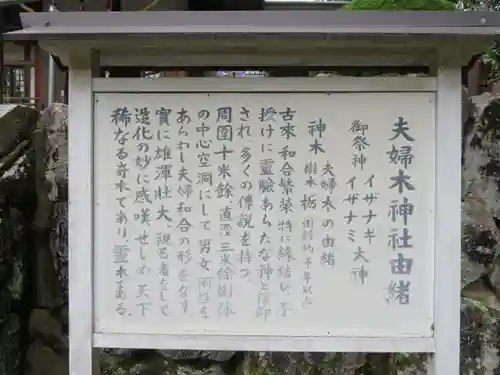 夫婦木神社由緒
御祭神 イザナギ
イザナミ 大神
夫婦木の由緒
神木 樹木 栃 樹齢約千年以上
古來和合繁榮特に縁結び、子
授けに靈驗あらたな神と信仰
され多くの傳説を持つ。
周圍十米餘、直徑三米餘、樹体
の中心空洞にして男女
あらわし夫婦和合の形をなす
實に雄渾壯大、視る者をして
造化の妙に感嘆せしめ天下
稀なる奇木であり、靈木である。